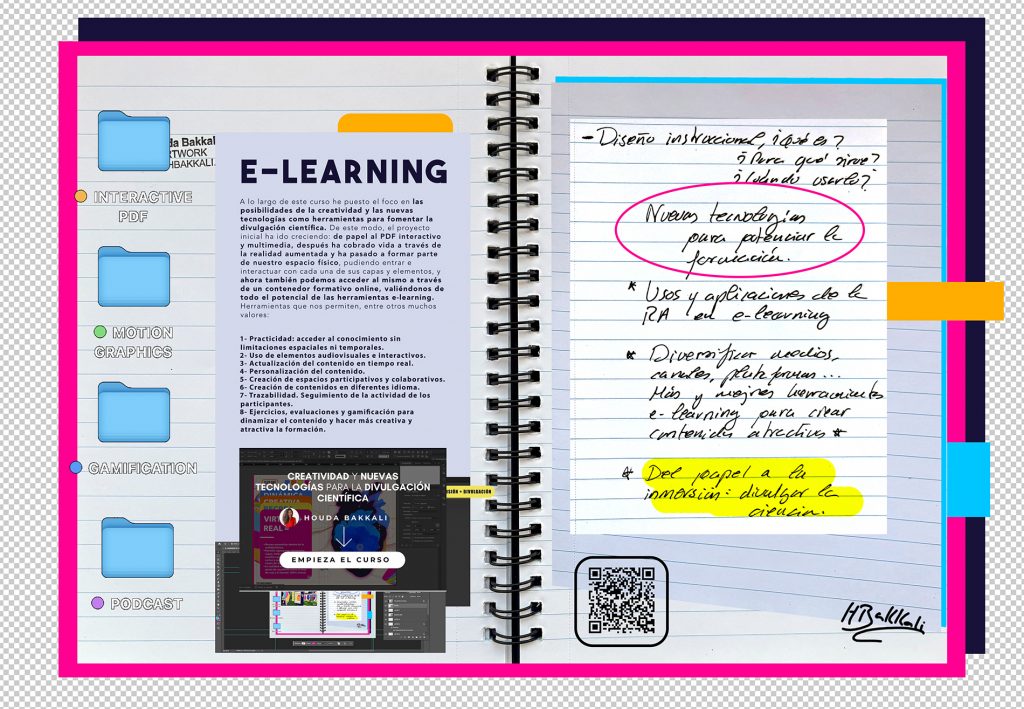 da Bakkal
RTWORK
HBAKKALI.
INTERACTIVE
PDF
MOTION
GRAPHICS
GAMIFICATION
PODCAST
E-LEARNING
A lo largo de este curso he puesto el foco en las
posibilidades de la creatividad y las nuevas
tecnologías como herramientas para fomentar la
divulgación científica. De este modo, el proyecto
inicial ha ido creciendo: de papel al PDF interactivo
y multimedia, después ha cobrado vida a través de
la realidad aumentada y ha pasado a formar parte
de nuestro espacio físico, pudiendo entrar e
interactuar con cada una de sus capas y elementos, y
ahora también podemos acceder al mismo a través
de un contenedor formativo online, valiéndonos de
todo el potencial de las herramientas e-learning.
Herramientas que nos permiten, entre otros muchos
valores:
1- Practicidad: acceder al conocimiento sin
limitaciones espaciales ni temporales.
2- Uso de elementos audiovisuales e interactivos.
3- Actualización del contenido en tiempo real.
4- Personalización del contenido.
5- Creación de espacios participativos y colaborativos.
6- Creación de contenidos en diferentes idioma.
7- Trazabilidad. Seguimiento de la actividad de los
participantes.
8- Ejercicios, evaluaciones y gamificación para
dinamizar el contenido y hacer más creativa y
atractiva la formación.
CREATIVIDAD Y NUEVAS
TECNOLOGÍAS PARA LA DIVULGACIÓN
CIENTÍFICA
HOUDA BAKKALI
EMPIEZA EL CURSO
SIÓN + DIVULGACIÓN
- Diseño instruccional, ¿Qué es?
¿Para qué sirve?
¿Cuándo usarlo?
Nuevas tecnologías
para potenciar la
formación.
* Usos y aplicaciones de la
RA en e-learning
* Diversificar medios,
canales, plataformas...
Más y mejores herramientas
e-learning para crear
contenidos atractivos *
* Del papel a la
inmersión: divulgar la
ciencia.
HBakkali